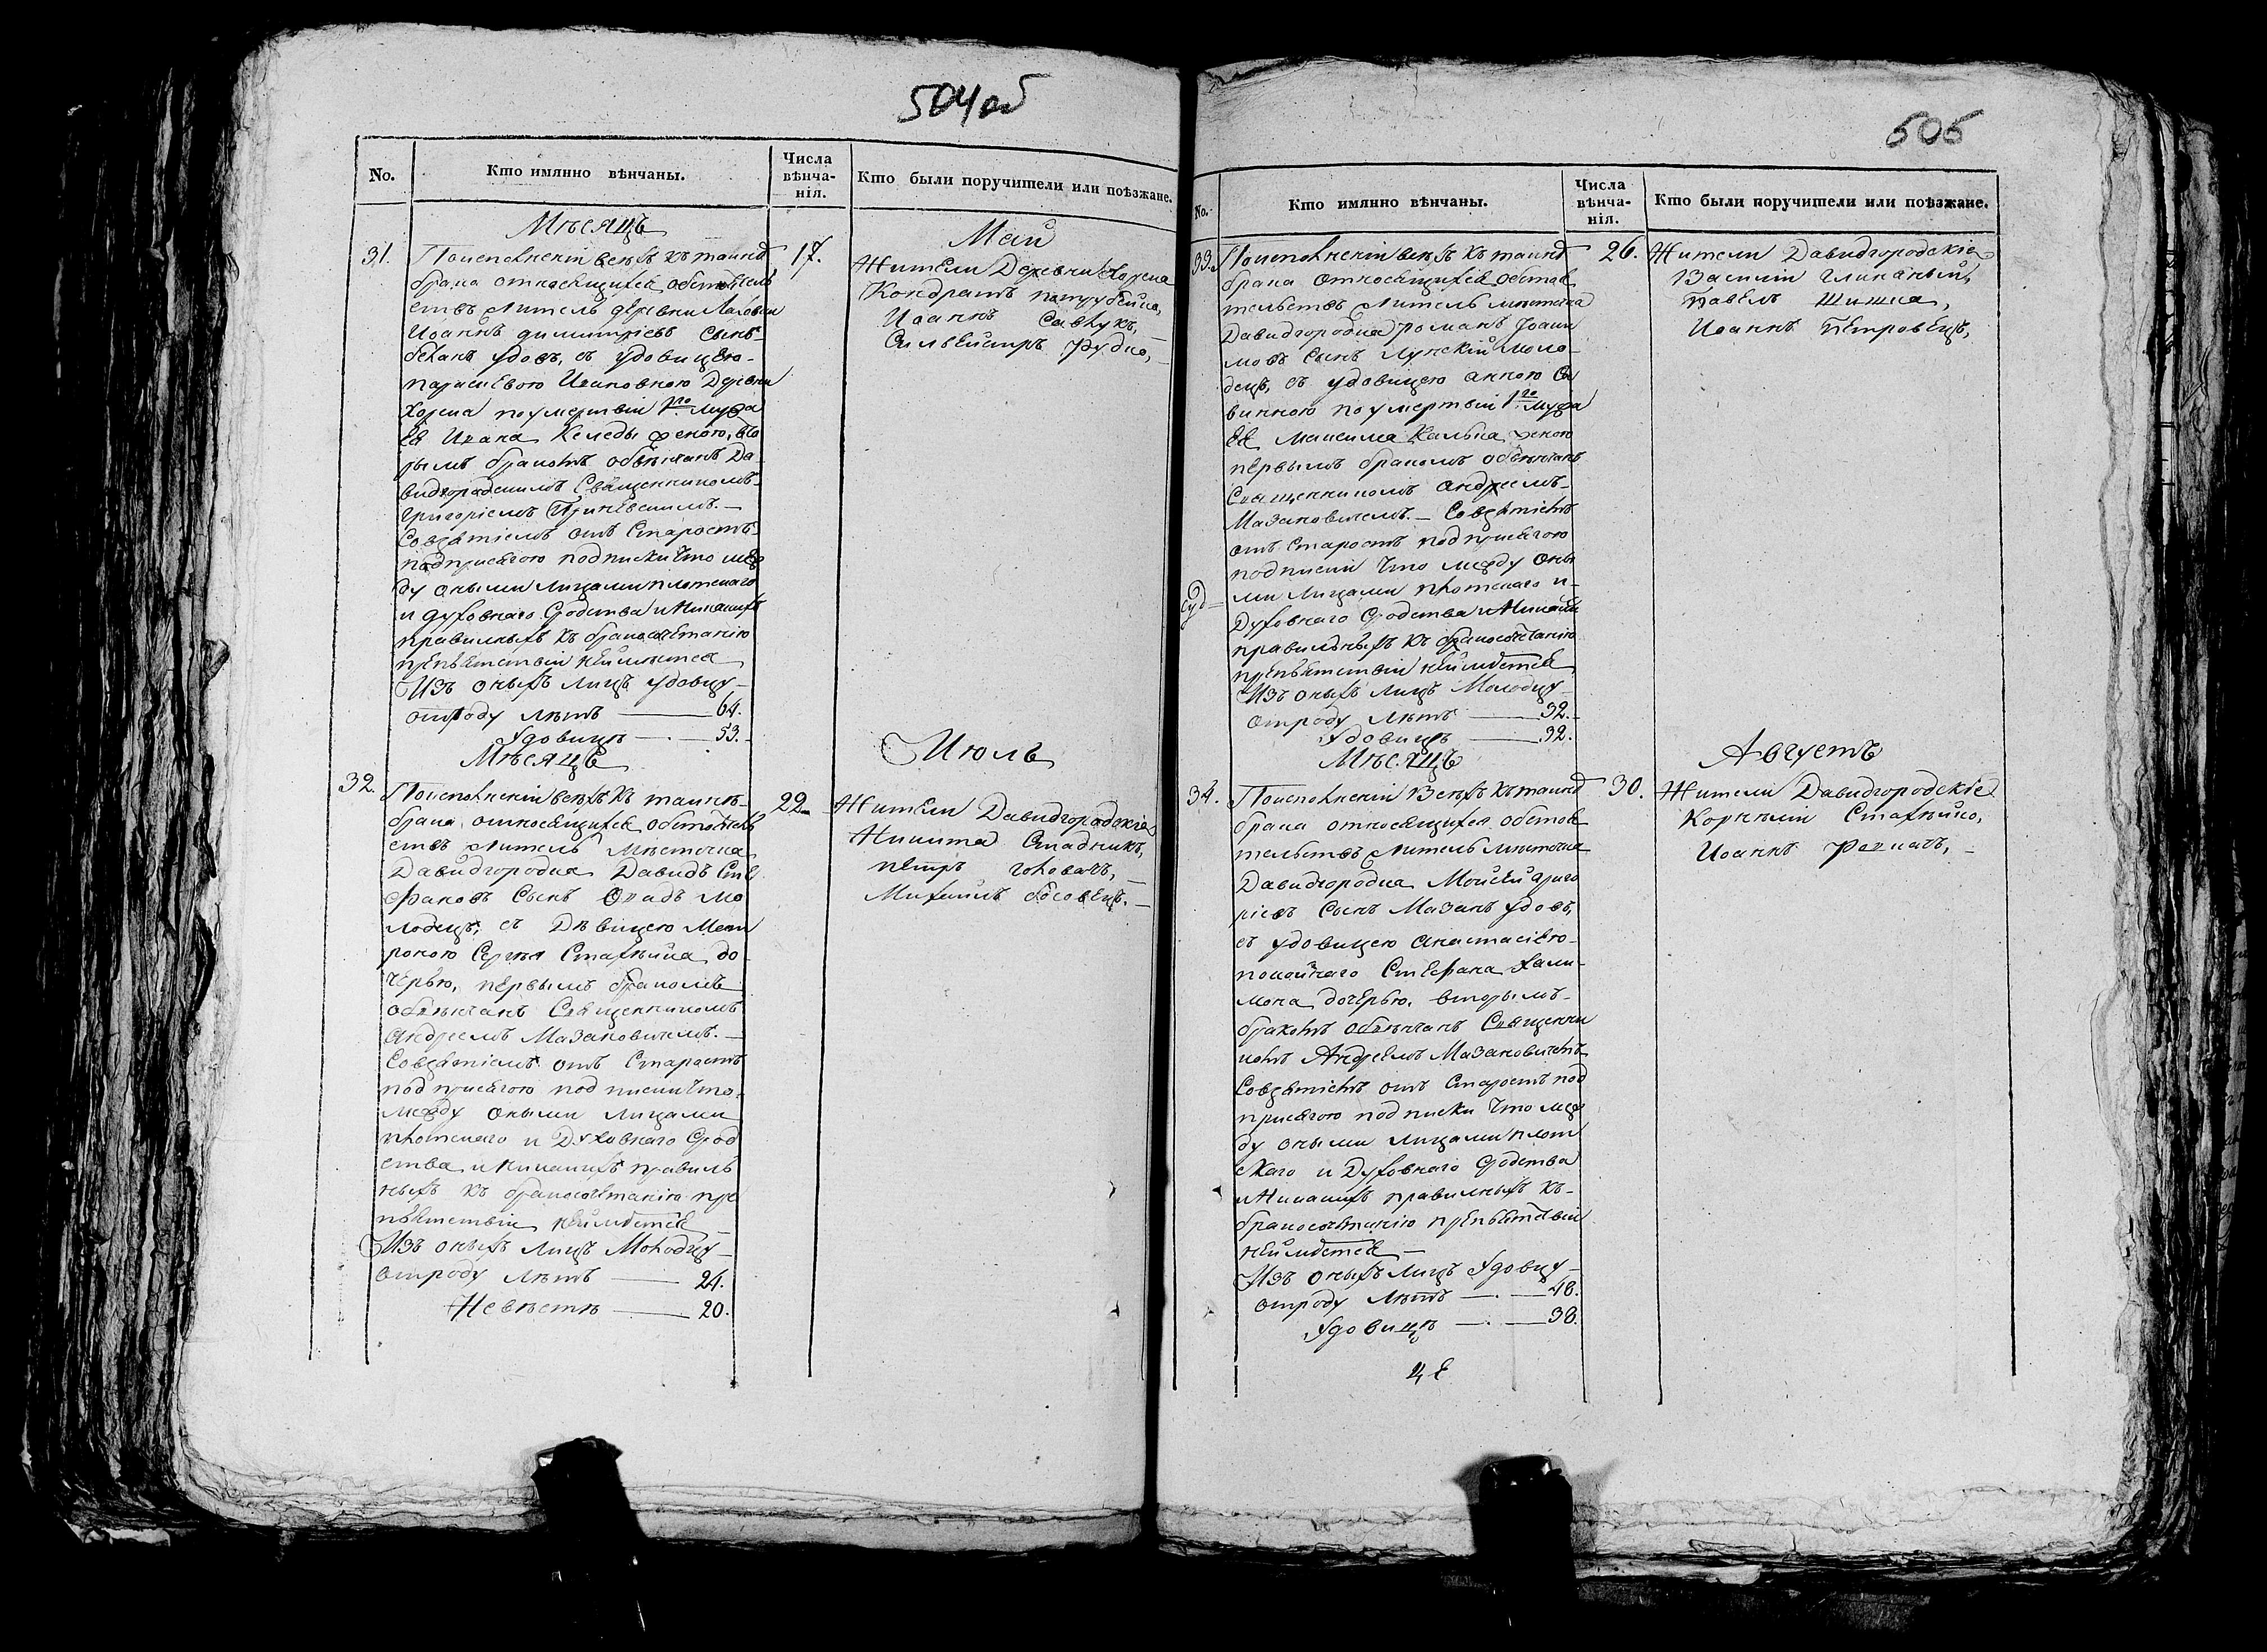 504 об
No.
Кто имянно вѣнчаны.
Числа вѣнча-нія.
Кто были поручители или поѣзжане.
Мѣсяцъ
Май
31.
По исполненіи всѣхъ къ таинѣ
брака относящихся обстоятель
ствъ житель деревни
Иоаннъ Димитріевъ сынъ
удовъ, съ удовицею
Иоановною деревни
Хорска по умертвіи 1го мужа
ея Ивана Келеды женою, вто
рымъ бракомъ обвѣнчанъ Да
видгородскимъ Священникомъ
Григоріемъ
Совзятіемъ отъ Старостъ
подприсягою подписки что меж
ду оными лицами плотскаго
и духовнаго сродства и никакихъ
правилныхъ къ бракосочетанію
препятствіи неимѣтся
Изъ оныхъ лицъ удовцу
отроду лѣтъ — 64.
Удовицѣ — 53.
17.
Жители Деревни Хорска
Кондратъ
Иоаннъ Савчукъ,
Силвейстръ Рудко,
Мѣсяцъ
Июль
32.
По исполненіи всѣхъ къ таинѣ
брака относящихся обстоятель
ствъ житель мѣстечка
Давидгородка Давидъ Сте
фановъ сынъ мо
лодецъ, съ Дѣвицею Мокри
роною Сергѣя Стахѣйка до
черью, первымъ бракомъ
обвѣнчанъ Священникомъ
Андреемъ Мазановичемъ.
Совзятіемъ отъ Старостъ
подприсягою подписки что
между оными лицами
плотскаго и Духовнаго срод
ства и никакихъ правиль
ныхъ къ бракосочетанію пре
пятствіи неимѣтся
Изъ оныхъ лицъ Молодцу
отроду лѣтъ — 24.
Невѣстѣ — 20.
22
Жители Давидгородскіе
Никита Спадникъ,
Петръ Головачъ,
Михаилъ
505
No.
Кто имянно вѣнчаны.
Числа вѣнча-нія.
Кто были поручители или поѣзжане.
33.
По исполненіи всѣхъ къ таинѣ
брака относящихся обстоя
тельствъ житель мѣстечка
Давидгородка Романъ Иоаки
мовъ сынъ Лунскій моло
децъ, съ удовицею Анною Са
вичною по умертвіи 1го мужа
ея Максима женою
первымъ бракомъ обвѣнчанъ
Священникомъ Андреемъ
Мазановичемъ. — Совзятіемъ
отъ Старостъ подприсягою
подписки что между оны
ми лицами плотскаго и
Духовнаго сродства и никаки
правильныхъ къ бракосочетанію
препятствіи неимѣтся
Изъ оныхъ лицъ Молодцу
отроду лѣтъ — 32.
Удовицѣ — 32.
26.
Жители Давидгородскіе
Василій Глинскій,
Павелъ Шишка,
Иоаннъ Петровецъ,
Мѣсяцъ
Августъ
34.
По исполненіи Всѣхъ къ таинѣ
брака относящихся обстоя
тельствъ житель мѣстечка
Давидгородка Мойсей Григо
ріевъ сынъ Мазанъ удовъ,
съ удовицею Анастасіею
покойнаго Стефана Хали
мона дочерью, вторымъ
бракомъ обвѣнчанъ Священни
комъ Андреемъ Мазановичемъ
Совзятіемъ отъ Старостъ под
присягою подписки что меж
ду оными лицами плот
скаго и Духовнаго сродства
и никакихъ правилныхъ къ
бракосочетанію препятствіи
неимѣтся
Изъ оныхъ лицъ Удовцу
отроду лѣтъ — 48.
Удовицѣ — 38.
30.
Жители Давидгородскіе
Корнѣлій Стахѣйко,
Иоаннъ Рогачъ,